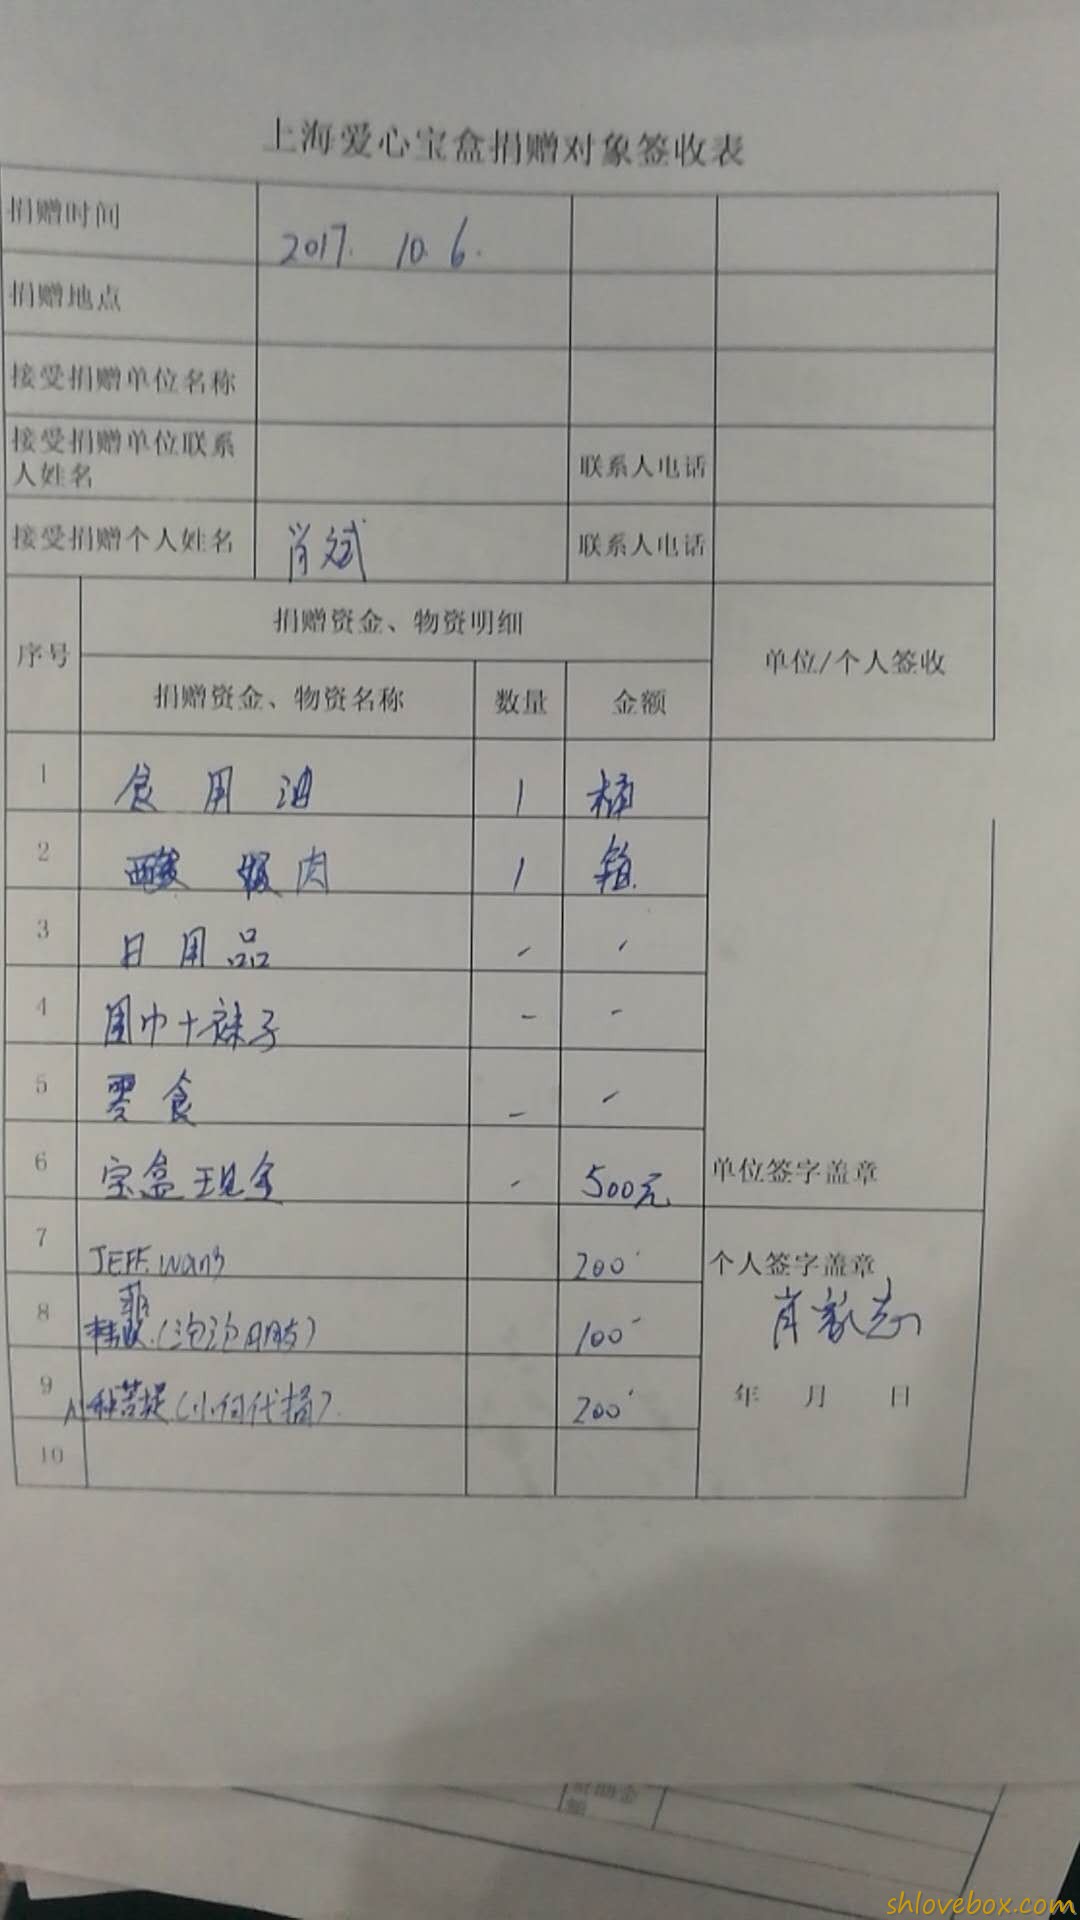 上海爱心宝盒捐赠对象签收表
捐赠时间 2017. 10. 6.
捐赠地点
接受捐赠单位名称
接受捐赠单位联系
人姓名 联系人电话
接受捐赠个人姓名 肖斌 联系人电话
序号 捐赠资金、物资明细 单位/个人签收
捐赠资金、物资名称 数量 金额
1 食用油 1 桶
2 肉 1 箱
3 日用品 - -
4 围巾+袜子 - -
5 零食 - -
6 宝盒现金 - 500元
单位签字盖章
7 JEFF.wang 200
个人签字盖章
8 (泡泡朋友) 100
肖
9 种菩提(小何代捐). 200
年 月 日
10
shlovebox.com